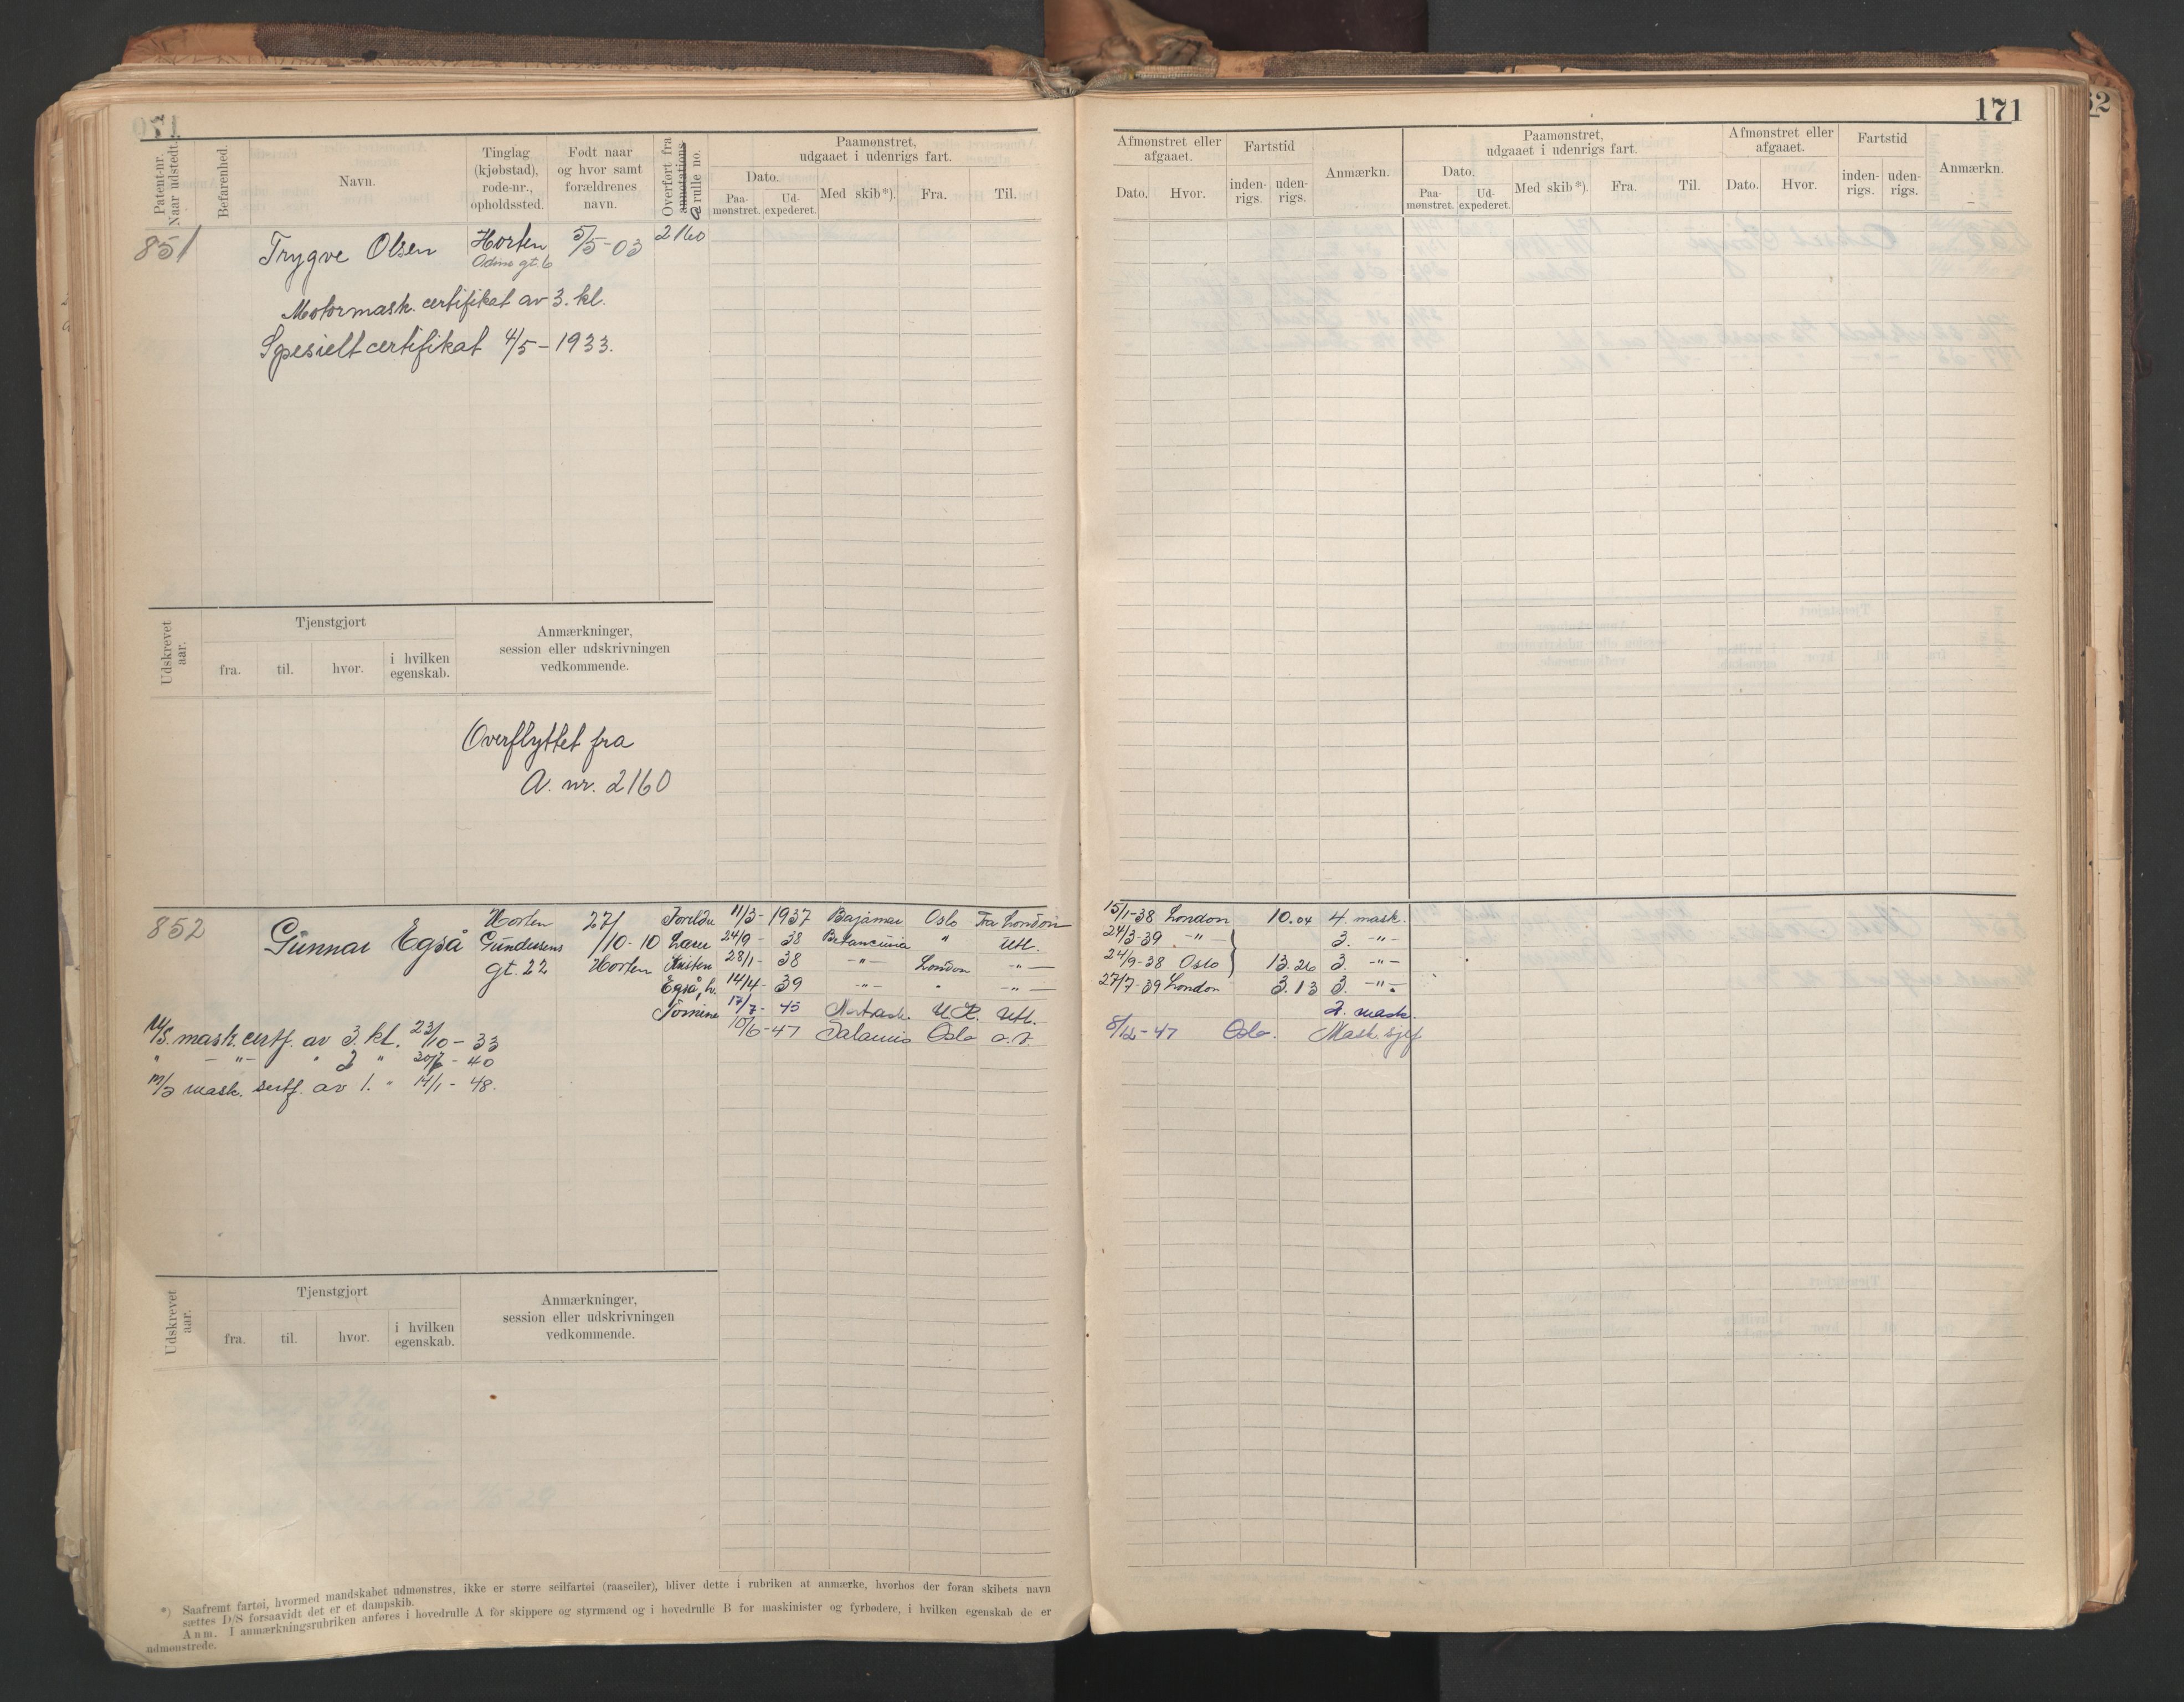 171
Patent-nr. Naar udstedt.
Befarenhed.
Navn.
Tinglag (kjøbstad), rode-nr., opholdssted.
Født naar og hvor samt forældrenes navn.
Overført fra annotations- a rulle no.
Paamønstret, udgaaet i udenrigs fart.
Dato.
Paa-mønstret.
Ud-expederet.
Med skib*).
Fra.
Til.
Afmønstret eller afgaaet.
Dato.
Hvor.
Fartstid
inden-rigs.
uden-rigs.
Anmærkn.
Paamønstret, udgaaet i udenrigs fart.
Dato.
Paa-mønstret.
Ud-expederet.
Med skib*).
Fra.
Til.
Afmønstret eller afgaaet.
Dato.
Hvor.
Fartstid
inden-rigs.
uden-rigs.
Anmærkn.
851 Trygve Olsen Horten 5/5-03 2160
Odins gt. 6
Motormask. certifikat av 3. kl.
Spesielt certifikat 4/5-1933.
Udskrevet aar.
Tjenstgjort
fra.
til.
hvor.
i hvilken egenskab.
Anmærkninger, session eller udskrivningen vedkommende.
Overflyttet fra
A. nr. 2160
852 Gunnar Egså Horten 27/ Foreldre 11/3-1937 Bajamar Oslo Fra London 15/1-38 London 10.04 4. mask.
Gundersens /10-10 24/9- 38 Betancuria " Utl. 24/3-39 -"- 3. -"-
gt. 22 Horten 28/1- 38 -"- London -"- 24/9-38 Oslo 13.26 3. -"-
Egså, h. 14/4- 39 -"- " -"- 27/7-39 London 3.13 3. -"-
17/7- 45 U.K. Utl. 2. mask.
10/6-47 Salamis Oslo a.s. 8/12-47 Oslo. Mask.sjef
M/S. mask. certf. av 3. kl. 23/10-33
" -"- " 2 " - 40
M/S mask. sertf. av 1. " 14/1-48.
Udskrevet aar.
Tjenstgjort
fra.
til.
hvor.
i hvilken egenskab.
Anmærkninger, session eller udskrivningen vedkommende.
*) Saafremt fartøi, hvormed mandskabet udmønstres, ikke er større seilfartøi (raaseiler), bliver dette i rubriken at anmærke, hvorhos der foran skibets navn
sættes D/S forsaavidt det er et dampskib.
Anm. I anmærkningsrubriken anføres i hovedrulle A for skippere og styrmænd og i hovedrulle B for maskinister og fyrbødere, i hvilken egenskab de er
udmønstrede.